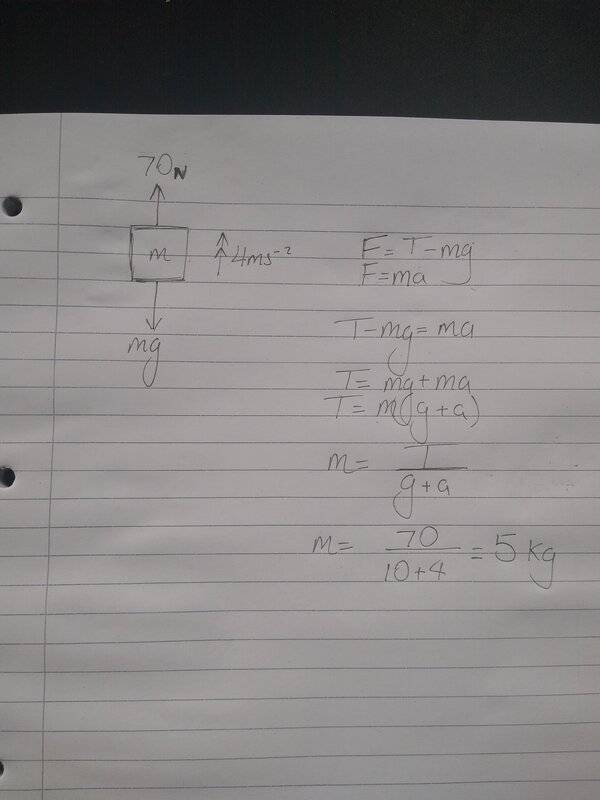 70N
m
4ms⁻²
mg
F = T-mg
F=ma
T-mg= ma
T= mg+ma
T= m(g+a)
m= T/g+a
m= 70/10+4 = 5 kg